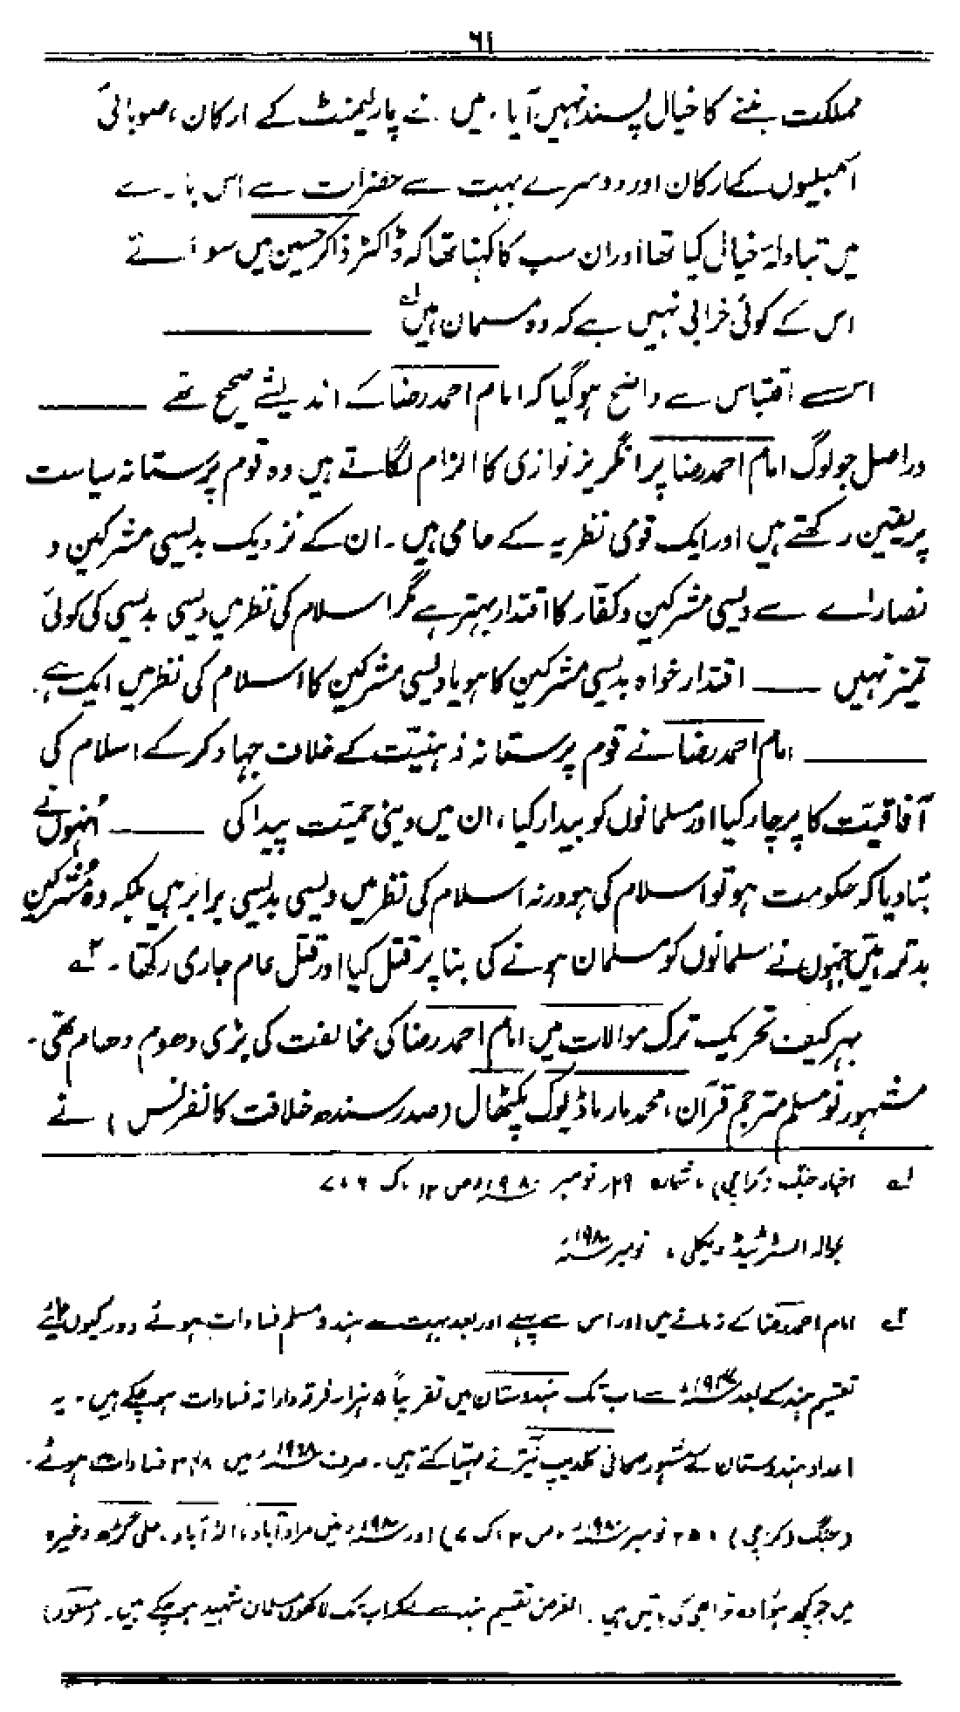 ٦١
مملکت بننے کا خیال پسند نہیں آیا۔ میں نے پارلیمنٹ کے ارکان، صوبائی
اسمبلیوں کے ارکان اور دوسرے بہت سے حضرات سے اس بارے
میں تبادلۂ خیال کیا تھا اور ان سب کا کہنا تھا کہ ڈاکٹر ذاکر حسین میں سوائے
اس کے کوئی خرابی نہیں ہے کہ وہ مسلمان ہیں ۱ے ——
اس اقتباس سے واضح ہو گیا کہ امام احمد رضا کے اندیشے صحیح تھے ——
دراصل جو لوگ امام احمد رضا پر انگریز نوازی کا الزام لگاتے ہیں وہ قوم پرستانہ سیاست
پر یقین رکھتے ہیں اور ایک قومی نظریہ کے حامی ہیں۔ ان کے نزدیک بدیسی مشرکین و
نصاراے سے دیسی مشرکین و کفار کا اقتدار بہتر ہے مگر اسلام کی نظر میں دیسی بدیسی کی کوئی
تمیز نہیں —— اقتدار خواہ بدیسی مشرکین کا ہو یا دیسی مشرکین کا اسلام کی نظر میں ایک ہے۔
—— امام احمد رضا نے قوم پرستانہ ذہنیّت کے خلاف جہاد کر کے اسلام کی
آفاقیّت کا پرچار کیا اور مسلمانوں کو بیدار کیا، ان میں دینی حمیّت پیدا کی —— اُنہوں نے
بتا دیا کہ حکومت ہو تو اسلام کی ہو ورنہ اسلام کی نظر میں دیسی بدیسی برابر ہیں بلکہ وہ مُشرکین
بدتر ہیں جنہوں نے مسلمانوں کو مسلمان ہونے کی بنا پر قتل کیا اور قتل عام جاری رکھا۔ ۲ے
بہر کیف تحریک ترک موالات میں امام احمد رضا کی مخالفت کی بڑی دھوم دھام تھی۔
مشہور نو مسلم مترجم قرآن، محمد مارماڈیوک پکتھال (صدر سندھ خلافت کانفرنس) نے
۱ے اخبار جنگ (کراچی)، شمارہ ۲۹ نومبر ۱۹۸۰ء ص ۱۲، ک ۶، ۷
بحوالہ السٹریٹیڈ ویکلی، نومبر ۱۹۸۰ء
۲ے امام احمد رضا کے زمانے میں اور اس سے پہلے اور بعد بہت سے ہندو مسلم فسادات ہوئے دور کیوں جائیے
تقسیم ہند کے بعد ۱۹۴۷ء سے اب تک ہندوستان میں تقریباً ۵ ہزار فرقہ وارانہ فسادات ہو چکے ہیں۔ یہ
اعداد ہندوستان کے مشہور صحافی کلدیپ نیّر نے مہیّا کئے ہیں۔ صرف میں فسادات ہوئے۔
(جنگ (کراچی) ۲۵ نومبر ۱۹۸۰ء، ص ۳، ک ۷) اور ۱۹۸۰ء میں مراد آباد، الٰہ آباد، علی گڑھ وغیرہ
میں جو کچھ ہوا وہ تو ابھی کی باتیں ہیں۔ الغرض تقسیم ہند سے لیکر اب تک لاکھوں مسلمان شہید ہو چکے ہیں۔ (مسعود)